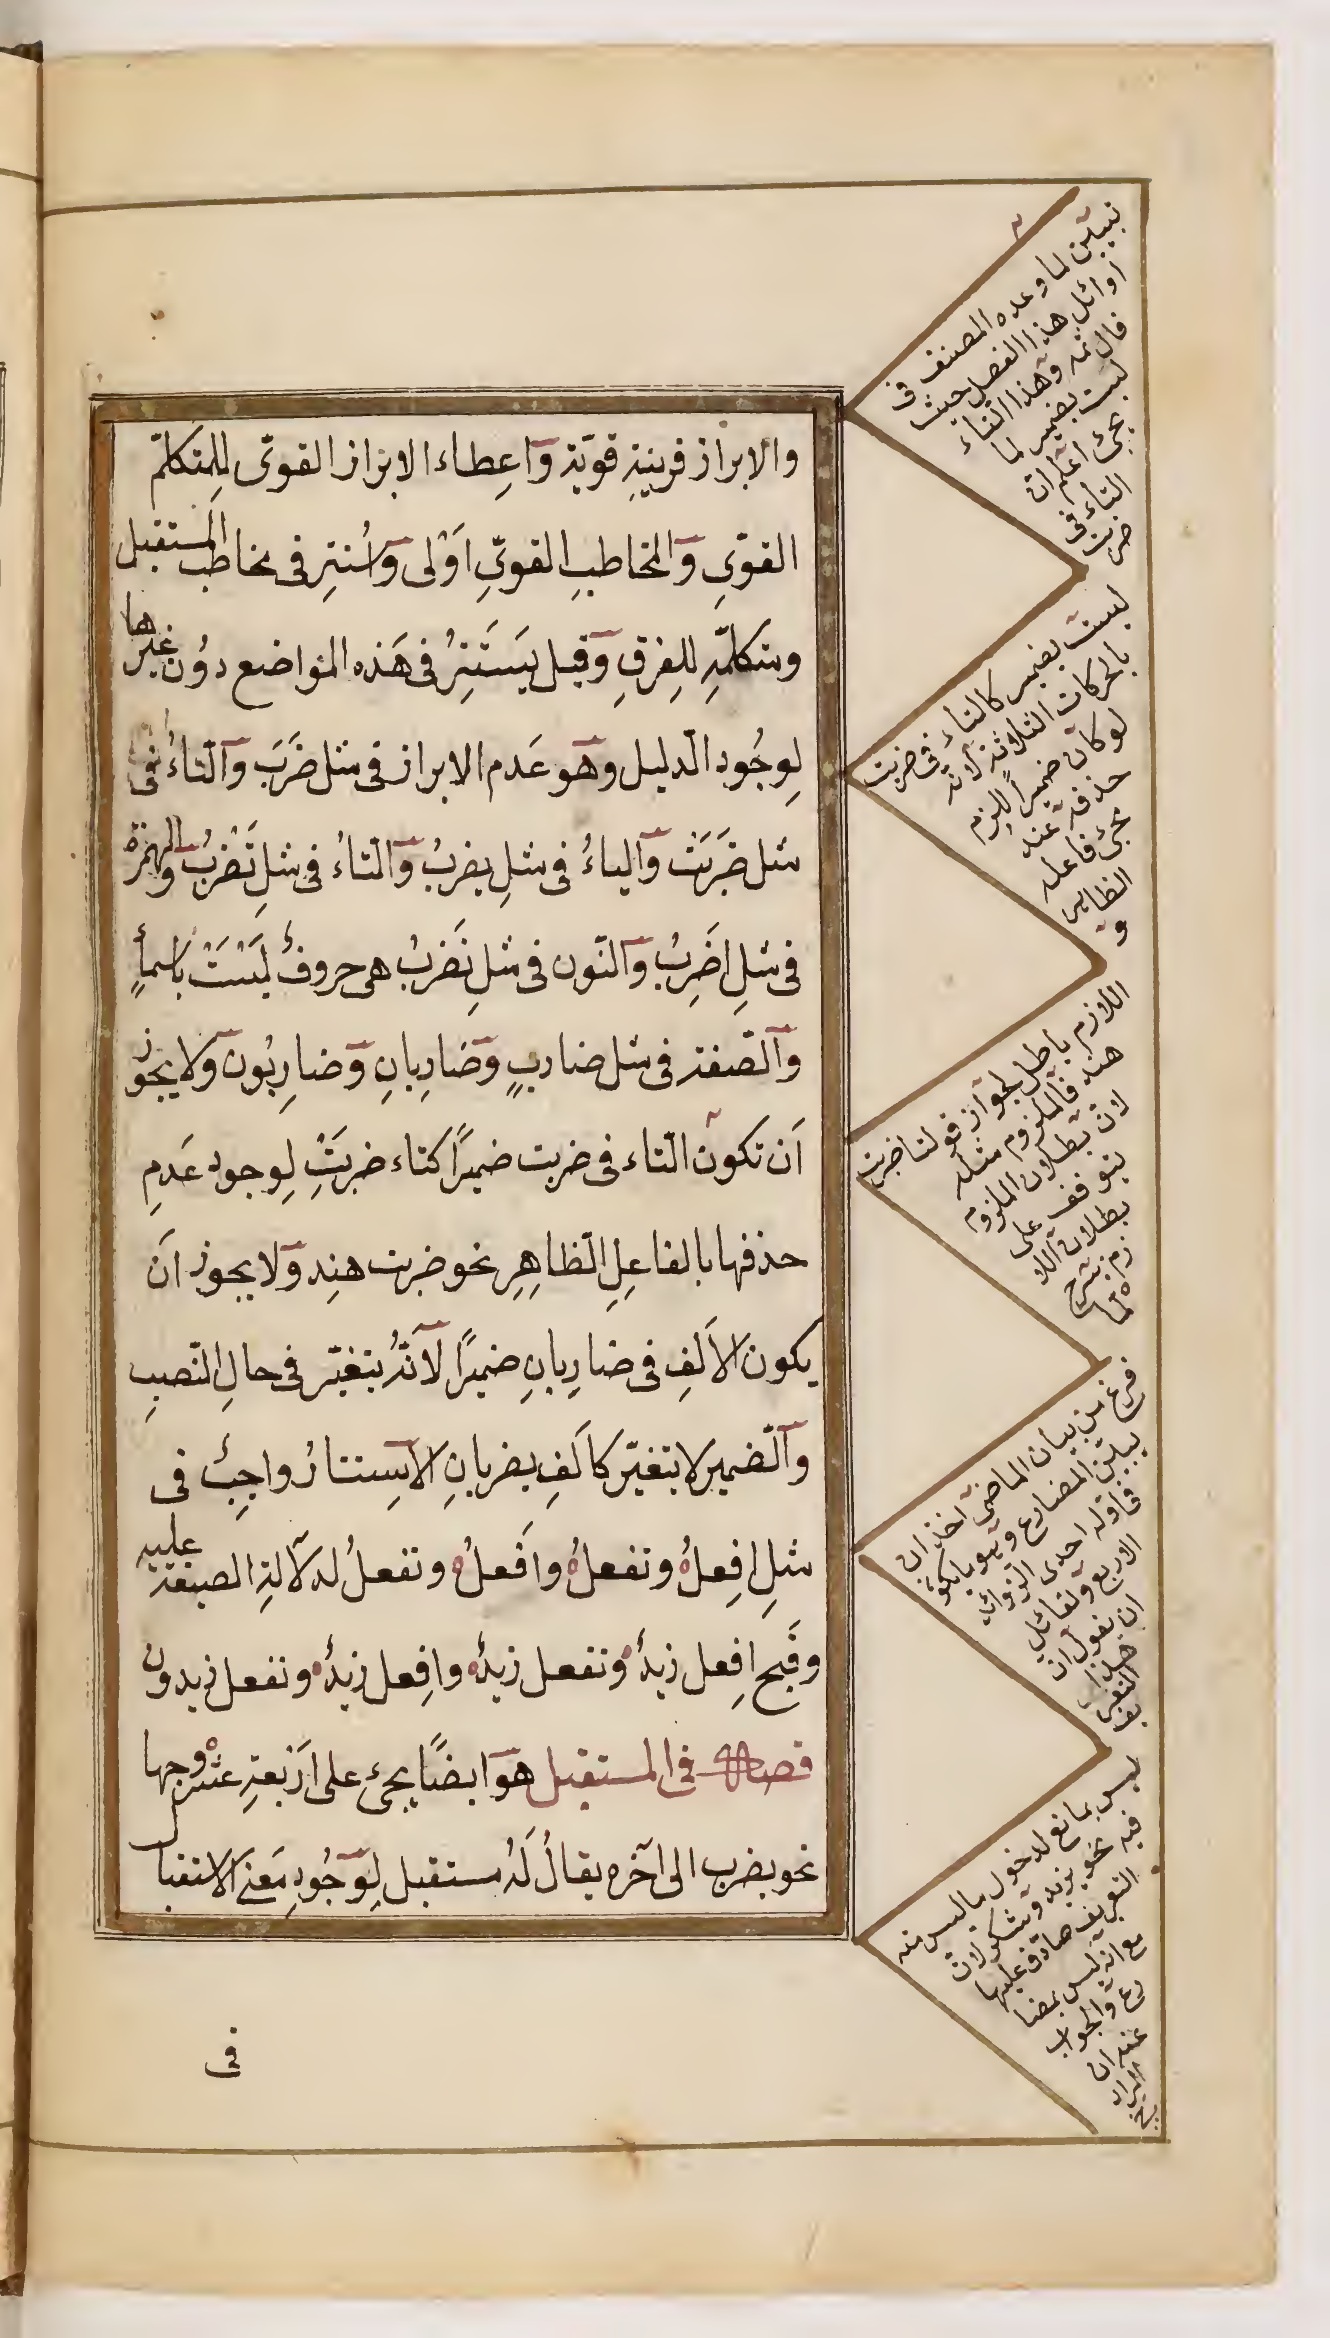 والابراز قرينة قوية وَاعِطاء الابراز القوىّ لِلمتكلّم
القوّىِ وَالمخاطبِ القوىِّ اَوْلى وَاسُتتِر فى مخاطب المستقبل
ومتكلّمِهِ لِلفِرقِ وَقيل يَستَتِرُ فى هَذه المواضع دوُن غيرها
لِوجُودِ الّدليل وهَو عَدم الابراز فى مثل ضَرَبَ وَالتاءُ فى
مثل ضَرَبَتْ وَالياءُ فى مثلِ يضربُ وَالتاءُ فى مثلِ تَضْربُ وَالهمزة
فى مثلِ اضَرِبُ وَالنّون فى مثلِ نَضَربُ هى حروفٌ لَيْسَتْ باسماءٍ
وَالصّفة فى مثل ضاربٍ وَضارِبانِ وَضارِبُون وَلا يجوز
اَن تكون التاء فى ضربت ضميرًا كتاء ضربَتْ لِوجود عَدمِ
حذفها بالفاعِلِ الظاهِرِ نحو ضربت هنِد وَلا يجوز اَن
يكون الاَلفِ فى ضارِبانِ ضميرًا لاَنّهُ يتغيّر فى حالِ النّصبِ
وَالضمير لا يتغيّر كاَلفِ يضربانِ الاسِتتارُ واجبٌ فى
مثلِ افِعلْ وتفعلُ وافَعلُ ونفعلُ لدلالةِ الصيغة عليه
وقَبح افِعل زيدٌ وتفعل زيدٌ وافِعل زيدٌ ونفعل زيدون
فصل فى المستقبل هوَ ايضًا يجىء على اَربعةِ عشر وجها
نحو يضرب الى آخره يقالُ لَهُ مستقبل لِوَجُودِ مَعنى الاستقبال
فى
نبيّن لما وعده المصنف فى
اوائل هذا الفصل حيث
قال ثمه وهذا التاء
ليست بضمير لما
يجئ اعلم ان
التاء فى
ضربت
ليست بضمير كالتاء فى ضربت
بالحركات الثلاثة لانّه
لو كان ضميرًا للزم
حذفه عند
مجئ فاعله
الظاهر
و
اللازم باطل لجواز قولنا ضربت
هند فالملزوم مثله
لان بطلان الملزوم
يتوقف على
بطلان اللا
زم شرح
لما
فرغ من بيان الماضى اخذ ان
يبيّن المضارع وهو ما يكون
فى اوّله احدى الزوائد
الاربع ولقائل
ان يقول ان
هذا
التعر
يف
ليس بمانع لدخول ما ليس منه
فيه نحو يزيد ويشكر لان
التعريف صادق عليها
مع انّه ليس بمضا
رع والجواب
عنه ان
المراد